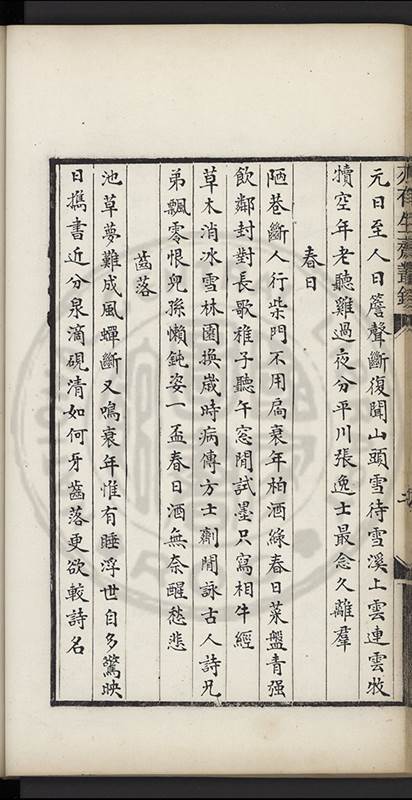 元日至人日簷聲斷復聞山頭雪待雪溪上雲連雲牧
犢空年老聽雞過夜分平川張逸士最念久離羣
春日
陋巷斷人行柴門不用扃衰年柏酒綠春日菜盤青强
飲鄰封對長歌稚子聽午窓閒試墨只寫相牛經
草木消冰雪林園換歲時病傳方士劑閒詠古人詩兄
弟飄零恨兒孫懶鈍姿一盃春日酒無奈醒愁悲
齒落
池草夢難成風蟬斷又鳴衰年惟有睡浮世自多驚映
日攤書近分泉滴硯清如何牙齒落更欲較詩名